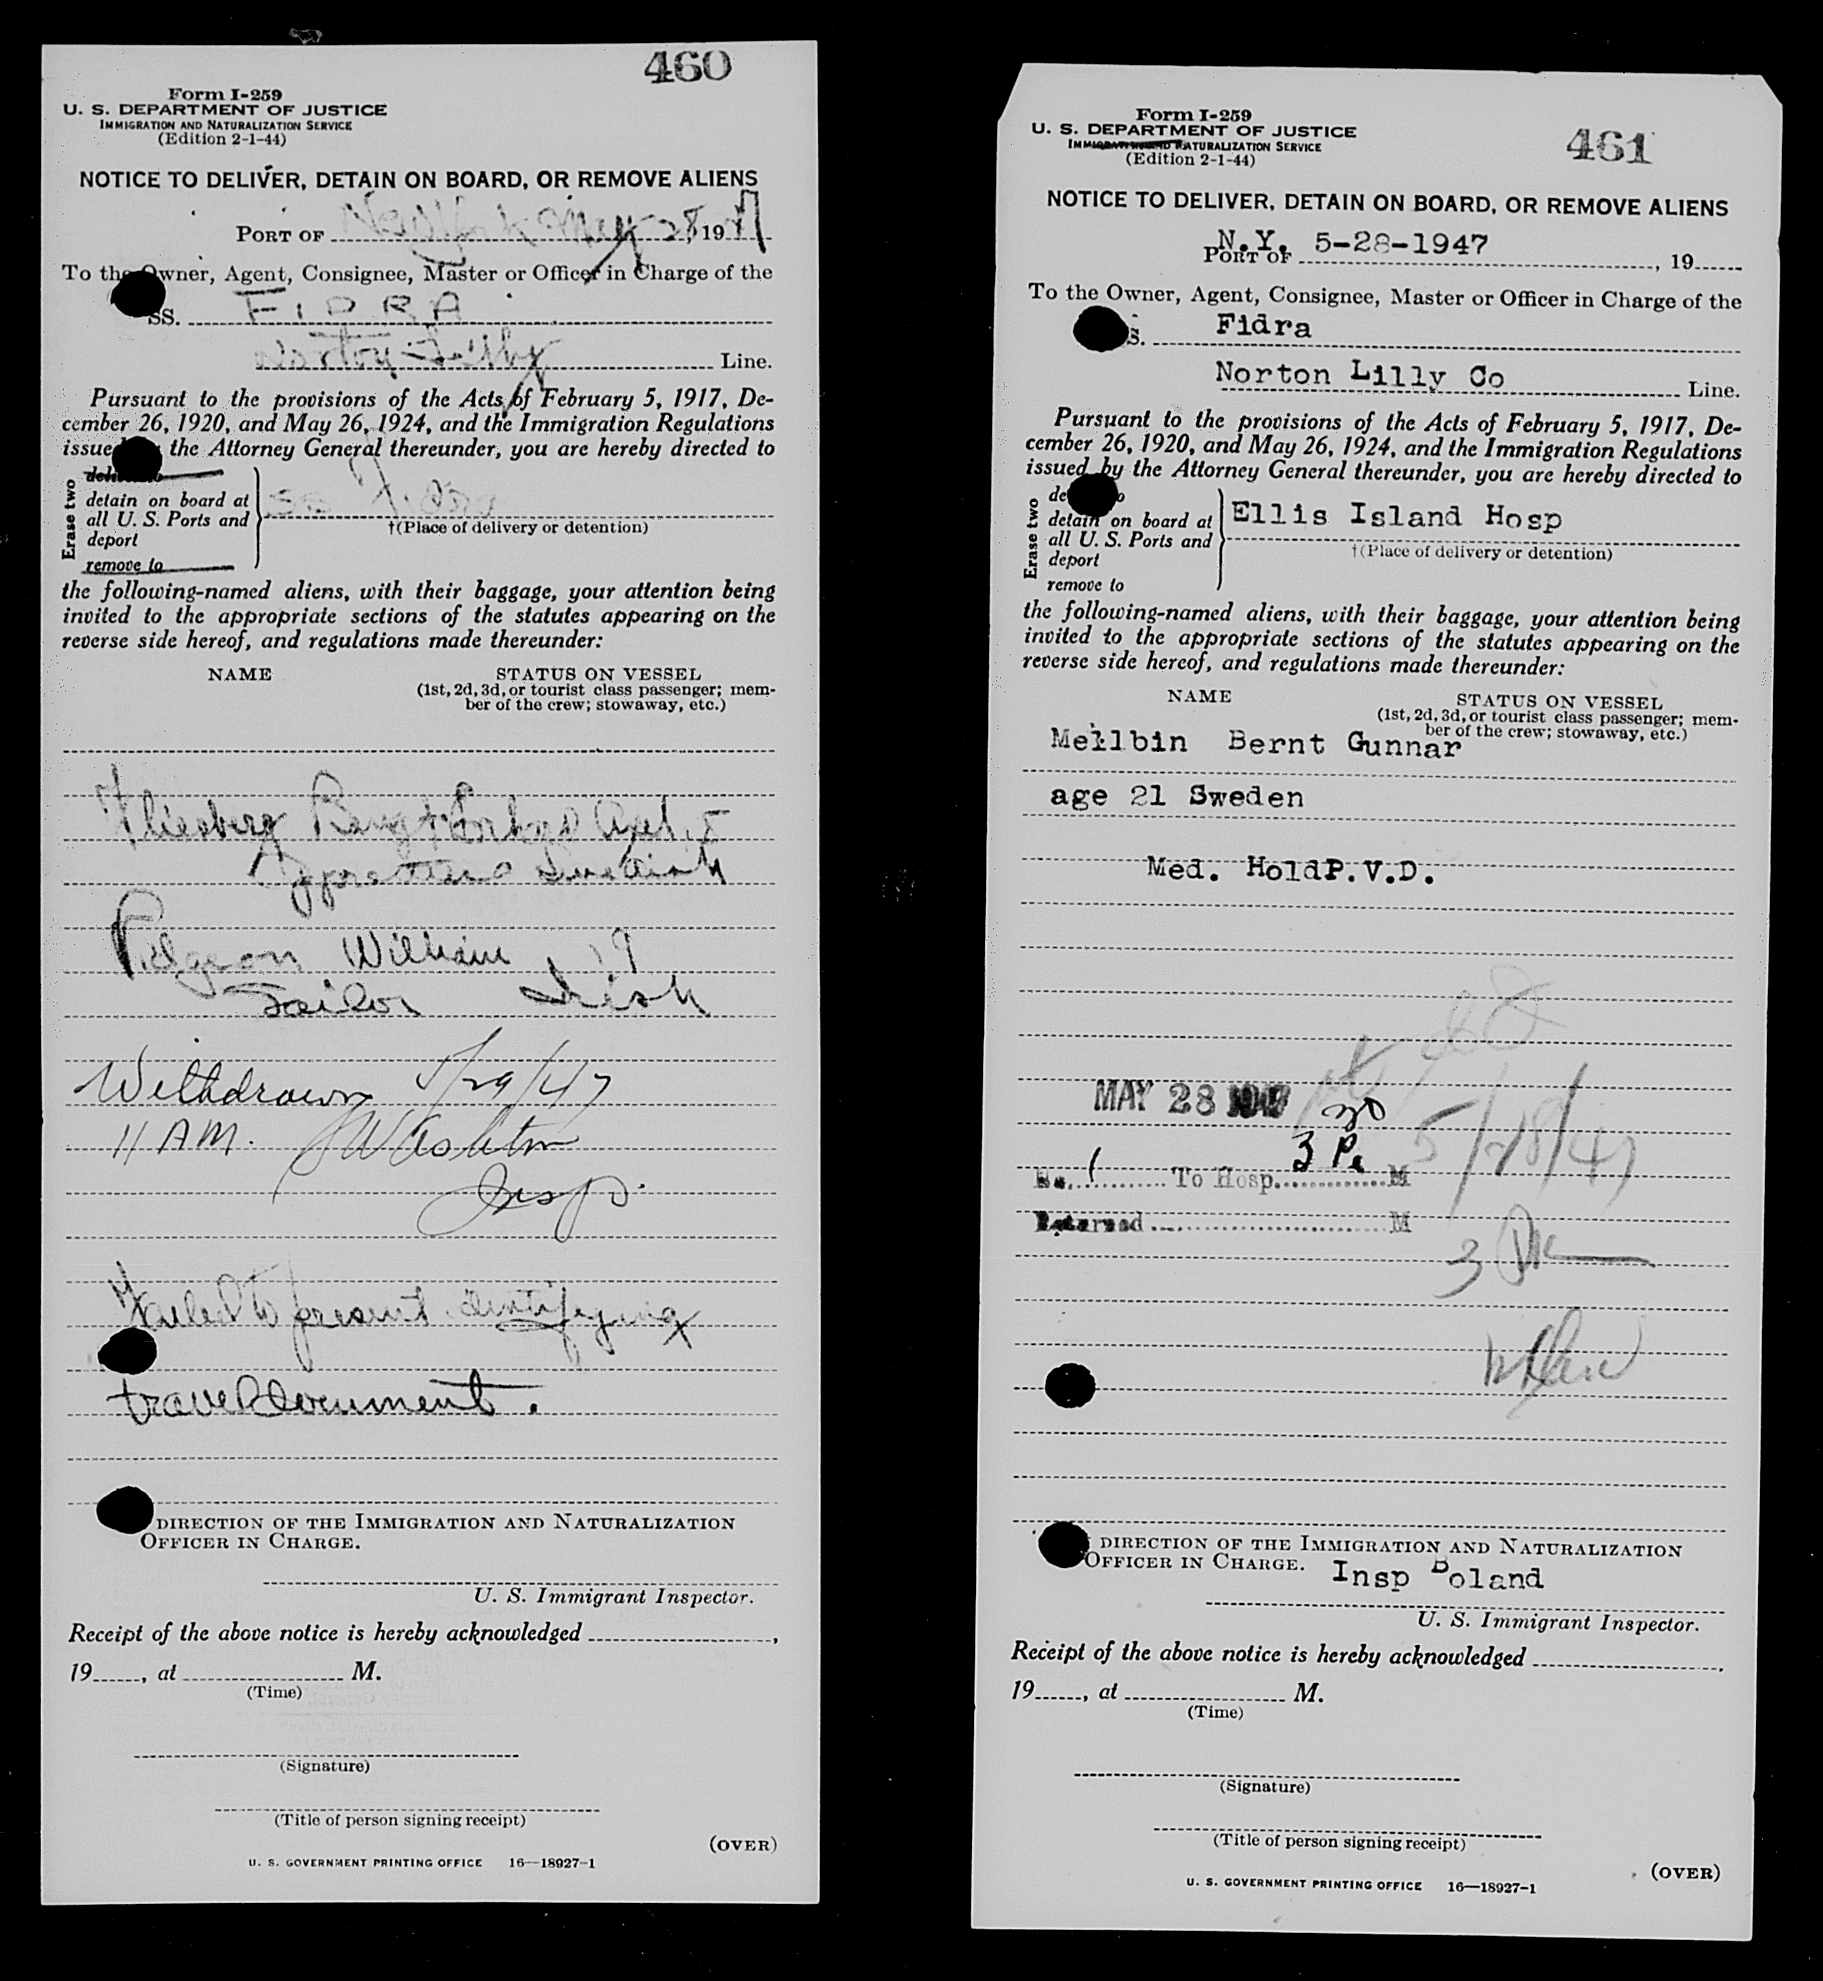 460
Form I-259
U. S. DEPARTMENT OF JUSTICE
IMMIGRATION AND NATURALIZATION SERVICE
(Edition 2-1-44)
NOTICE TO DELIVER, DETAIN ON BOARD, OR REMOVE ALIENS
PORT OF New York May 28, 1947
To the Owner, Agent, Consignee, Master or Officer in Charge of the
SS. FIDRA
Norton Lilly Line.
Pursuant to the provisions of the Acts of February 5, 1917, De-
cember 26, 1920, and May 26, 1924, and the Immigration Regulations
issued the Attorney General thereunder, you are hereby directed to
Erase two
deliver to
detain on board at
all U. S. Ports and
deport
remove to
SS Fidra
†(Place of delivery or detention)
the following-named aliens, with their baggage, your attention being
invited to the appropriate sections of the statutes appearing on the
reverse side hereof, and regulations made thereunder:
NAME STATUS ON VESSEL
(1st, 2d, 3d, or tourist class passenger; mem-
ber of the crew; stowaway, etc.)
Bengt Axel
Swedish
Pidgeon William 19
Sailor Irish
Withdrawn 5/29/47
11 AM.
Insp.
Failed to present identifying
travel document.
DIRECTION OF THE IMMIGRATION AND NATURALIZATION
OFFICER IN CHARGE.
U. S. Immigrant Inspector.
Receipt of the above notice is hereby acknowledged
19, at M.
(Time)
(Signature)
(Title of person signing receipt)
(OVER)
U. S. GOVERNMENT PRINTING OFFICE 16—18927-1
461
Form I-259
U. S. DEPARTMENT OF JUSTICE
IMMIGRATION AND NATURALIZATION SERVICE
(Edition 2-1-44)
NOTICE TO DELIVER, DETAIN ON BOARD, OR REMOVE ALIENS
PORT OF N.Y. 5-28-1947, 19
To the Owner, Agent, Consignee, Master or Officer in Charge of the
S. Fidra
Norton Lilly Co Line.
Pursuant to the provisions of the Acts of February 5, 1917, De-
cember 26, 1920, and May 26, 1924, and the Immigration Regulations
issued by the Attorney General thereunder, you are hereby directed to
Erase two
de o
detain on board at
all U. S. Ports and
deport
remove to
Ellis Island Hosp
†(Place of delivery or detention)
the following-named aliens, with their baggage, your attention being
invited to the appropriate sections of the statutes appearing on the
reverse side hereof, and regulations made thereunder:
NAME STATUS ON VESSEL
(1st, 2d, 3d, or tourist class passenger; mem-
ber of the crew; stowaway, etc.)
Mellbin Bernt Gunnar
age 21 Sweden
Med. HoldP.V.D.
MAY 28 1947
30
No. 1 To Hosp. 3 P. M 5/28/47
Returned M
3
DIRECTION OF THE IMMIGRATION AND NATURALIZATION
OFFICER IN CHARGE. Insp Boland
U. S. Immigrant Inspector.
Receipt of the above notice is hereby acknowledged
19, at M.
(Time)
(Signature)
(Title of person signing receipt)
(OVER)
U. S. GOVERNMENT PRINTING OFFICE 16—18927-1